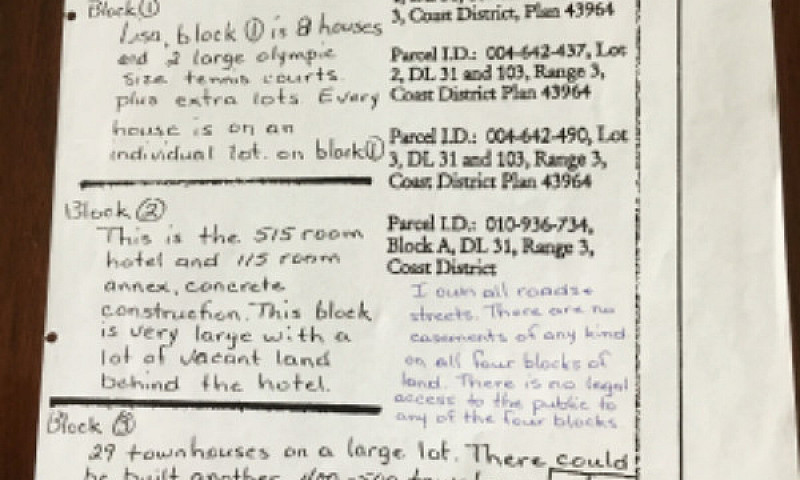 Block ①
Lisa, block ① is 8 houses
and 2 large olympic
size tennis courts.
plus extra lots Every
house is on an
individual lot. on block ①
Block ②
This is the 515 room
hotel and 115 room
annex, concrete
construction. This block
is very large with a
lot of vacant land
behind the hotel.
Block ③
29 townhouses on a large lot. There could
be built another
3, Coast District, Plan 43964
Parcel I.D.: 004-642-437, Lot
2, DL 31 and 103, Range 3,
Coast District Plan 43964
Parcel I.D.: 004-642-490, Lot
3, DL 31 and 103, Range 3,
Coast District Plan 43964
Parcel I.D.: 010-936-734,
Block A, DL 31, Range 3,
Coast District
I own all roads +
streets. There are no
easements of any kind
on all four blocks of
land. There is no legal
access to the public to
any of the four blocks